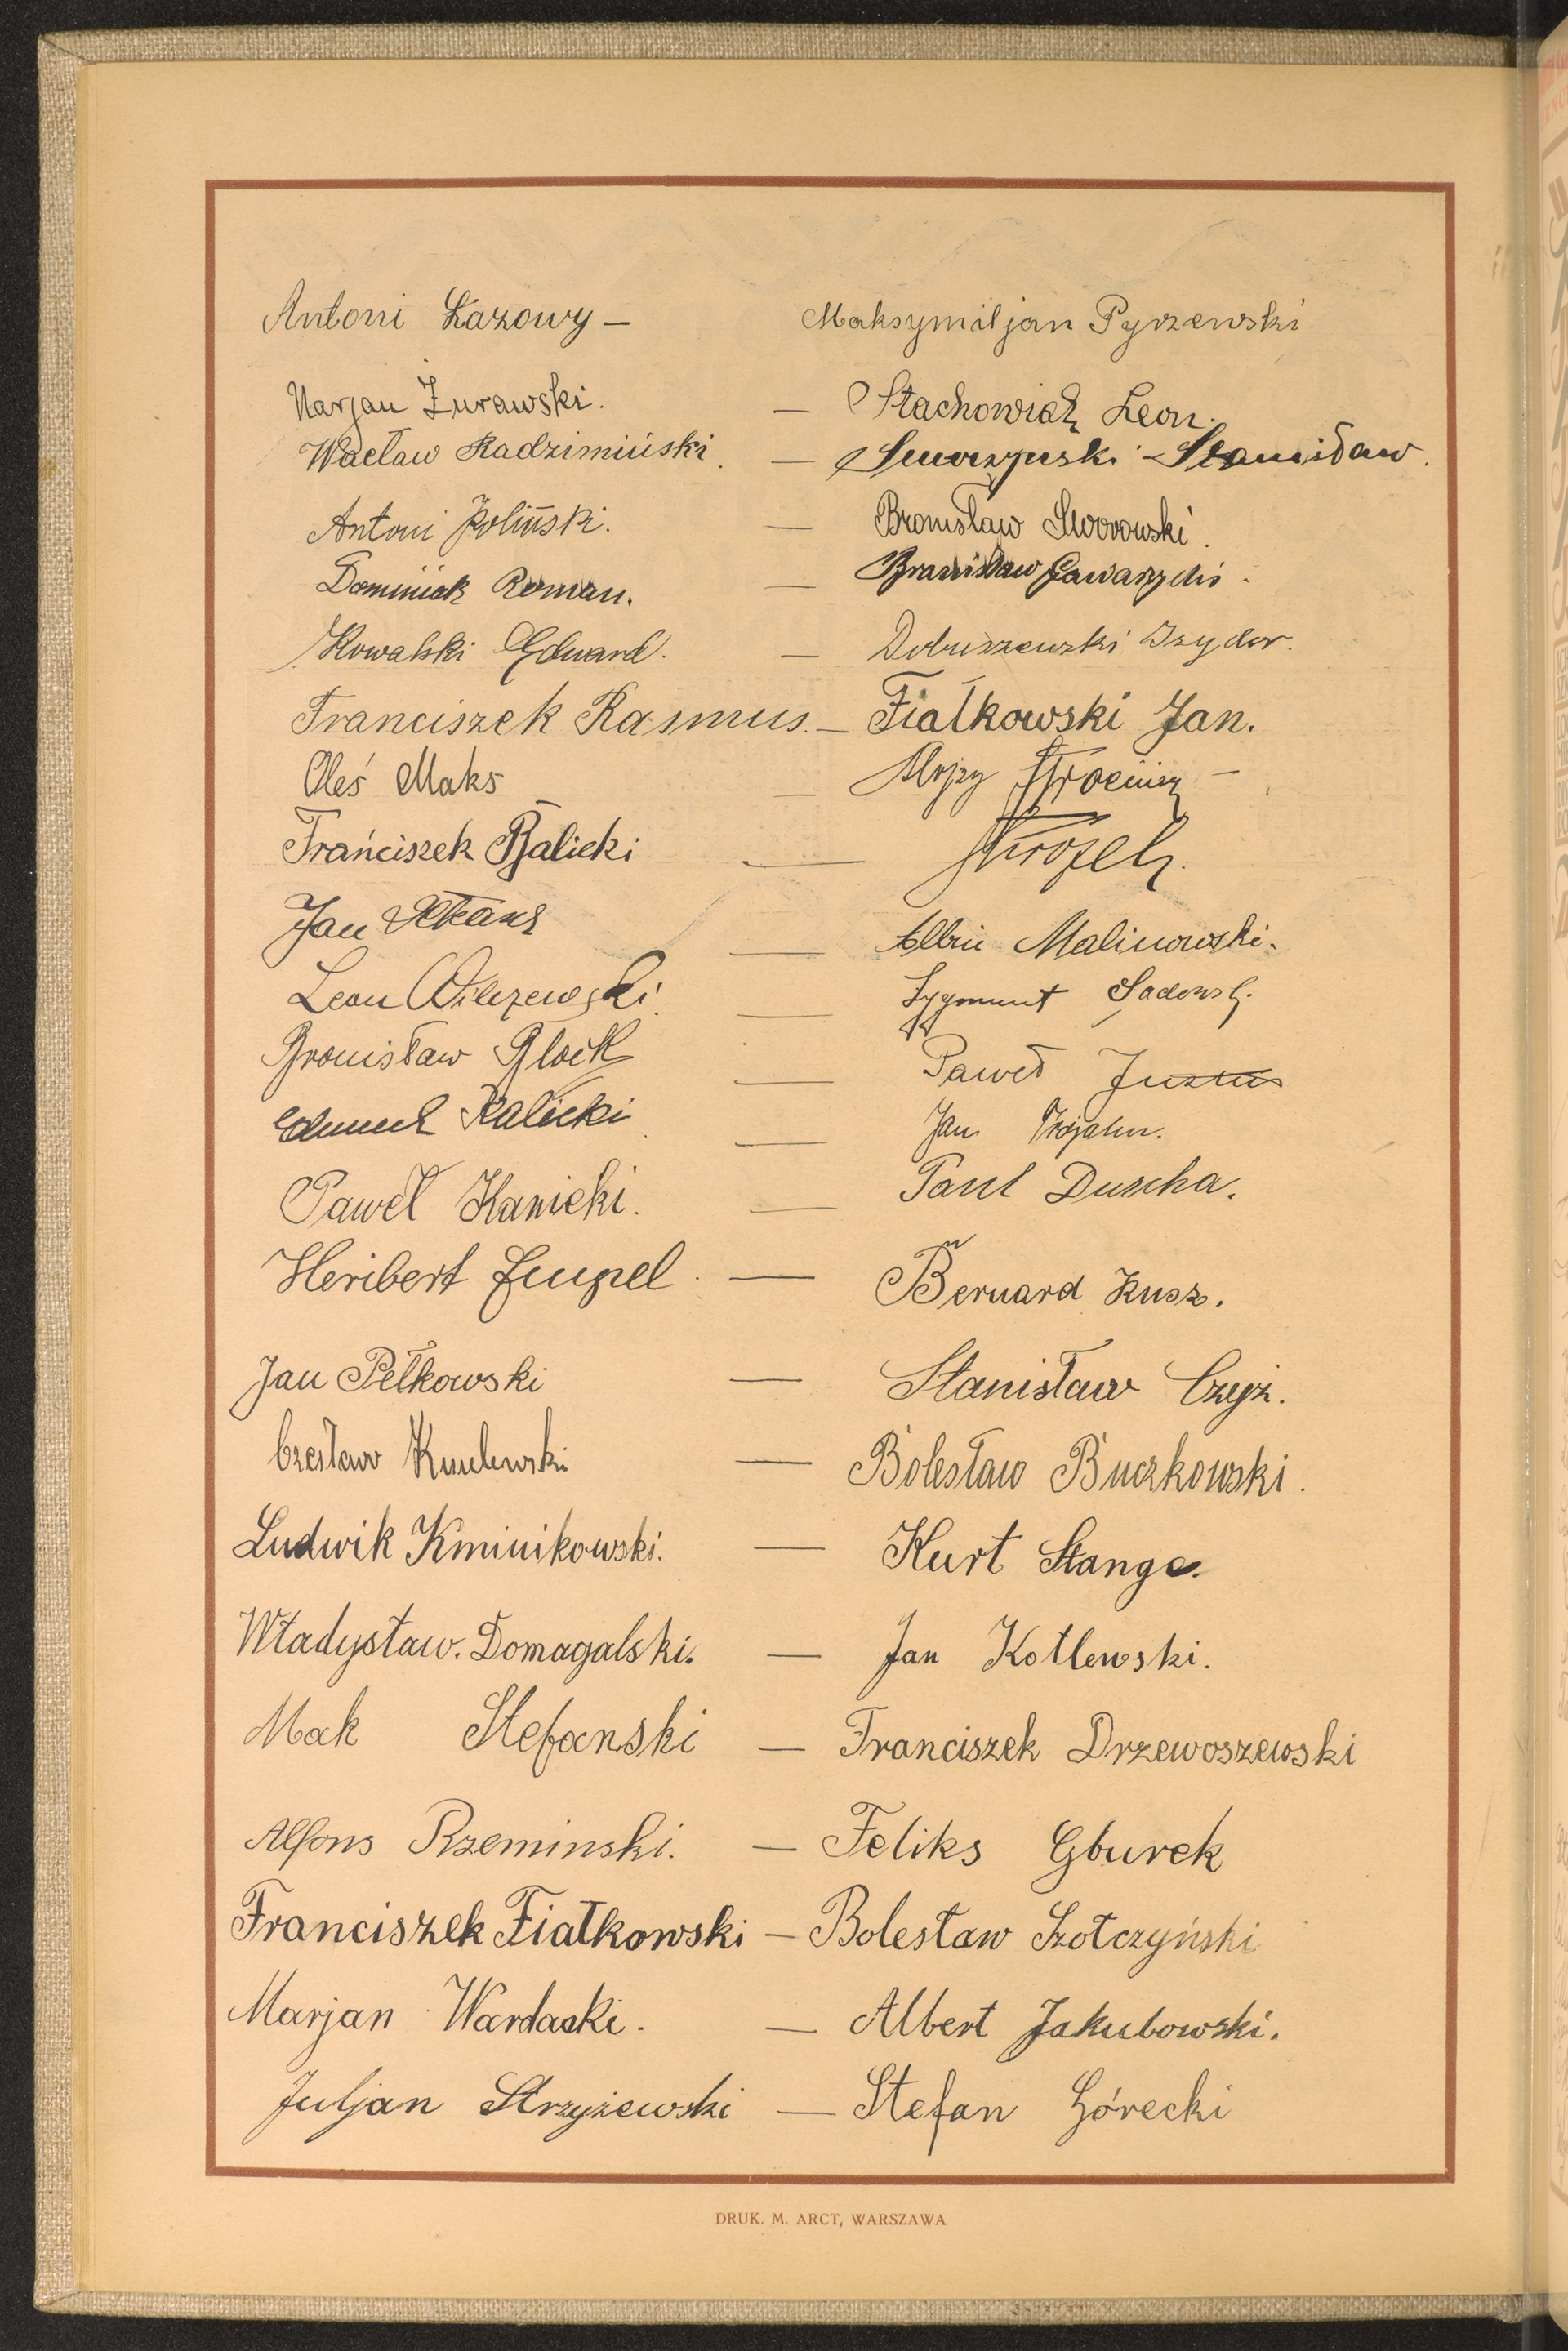 Antoni Łazowy — Maksymiljan Pyrzewski
Marjan Żurawski. — Stachowiak Leon.
Wacław Radzimiński. — Stanisław.
Antoni Joliński. — Bronisław Sworowski.
Dominiak Roman. — Bronisław
Kowalski Edward. — Dobuszewski Izydor.
Franciszek Rasmus. — Fiałkowski Jan.
Oleś Maks — Alojzy
Franciszek Balicki —
Jan —
Albin Malinowski.
Leon Wilczewski. — Zygmunt
Bronisław Glock — Paweł Justus
Edmund Kalicki — Jan Trojahn.
Paweł Kanicki. — Paul Duscha.
Heribert — Bernard Kusz.
Jan Pełkowski — Stanisław Czyż.
Czesław — Bolesław Buczkowski.
Ludwik Kminikowski. — Kurt Stange.
Władysław. Domagalski. — Jan Kotlewski.
Mak Stefanski — Franciszek Drzewoszewski
Alfons Rzeminski. — Feliks Gburek
Franciszek Fiałkowski — Bolesław Szołczyński
Marjan Wardacki. — Albert Jakubowski.
Juljan Strzyżewski — Stefan Górecki
DRUK. M. ARCT, WARSZAWA